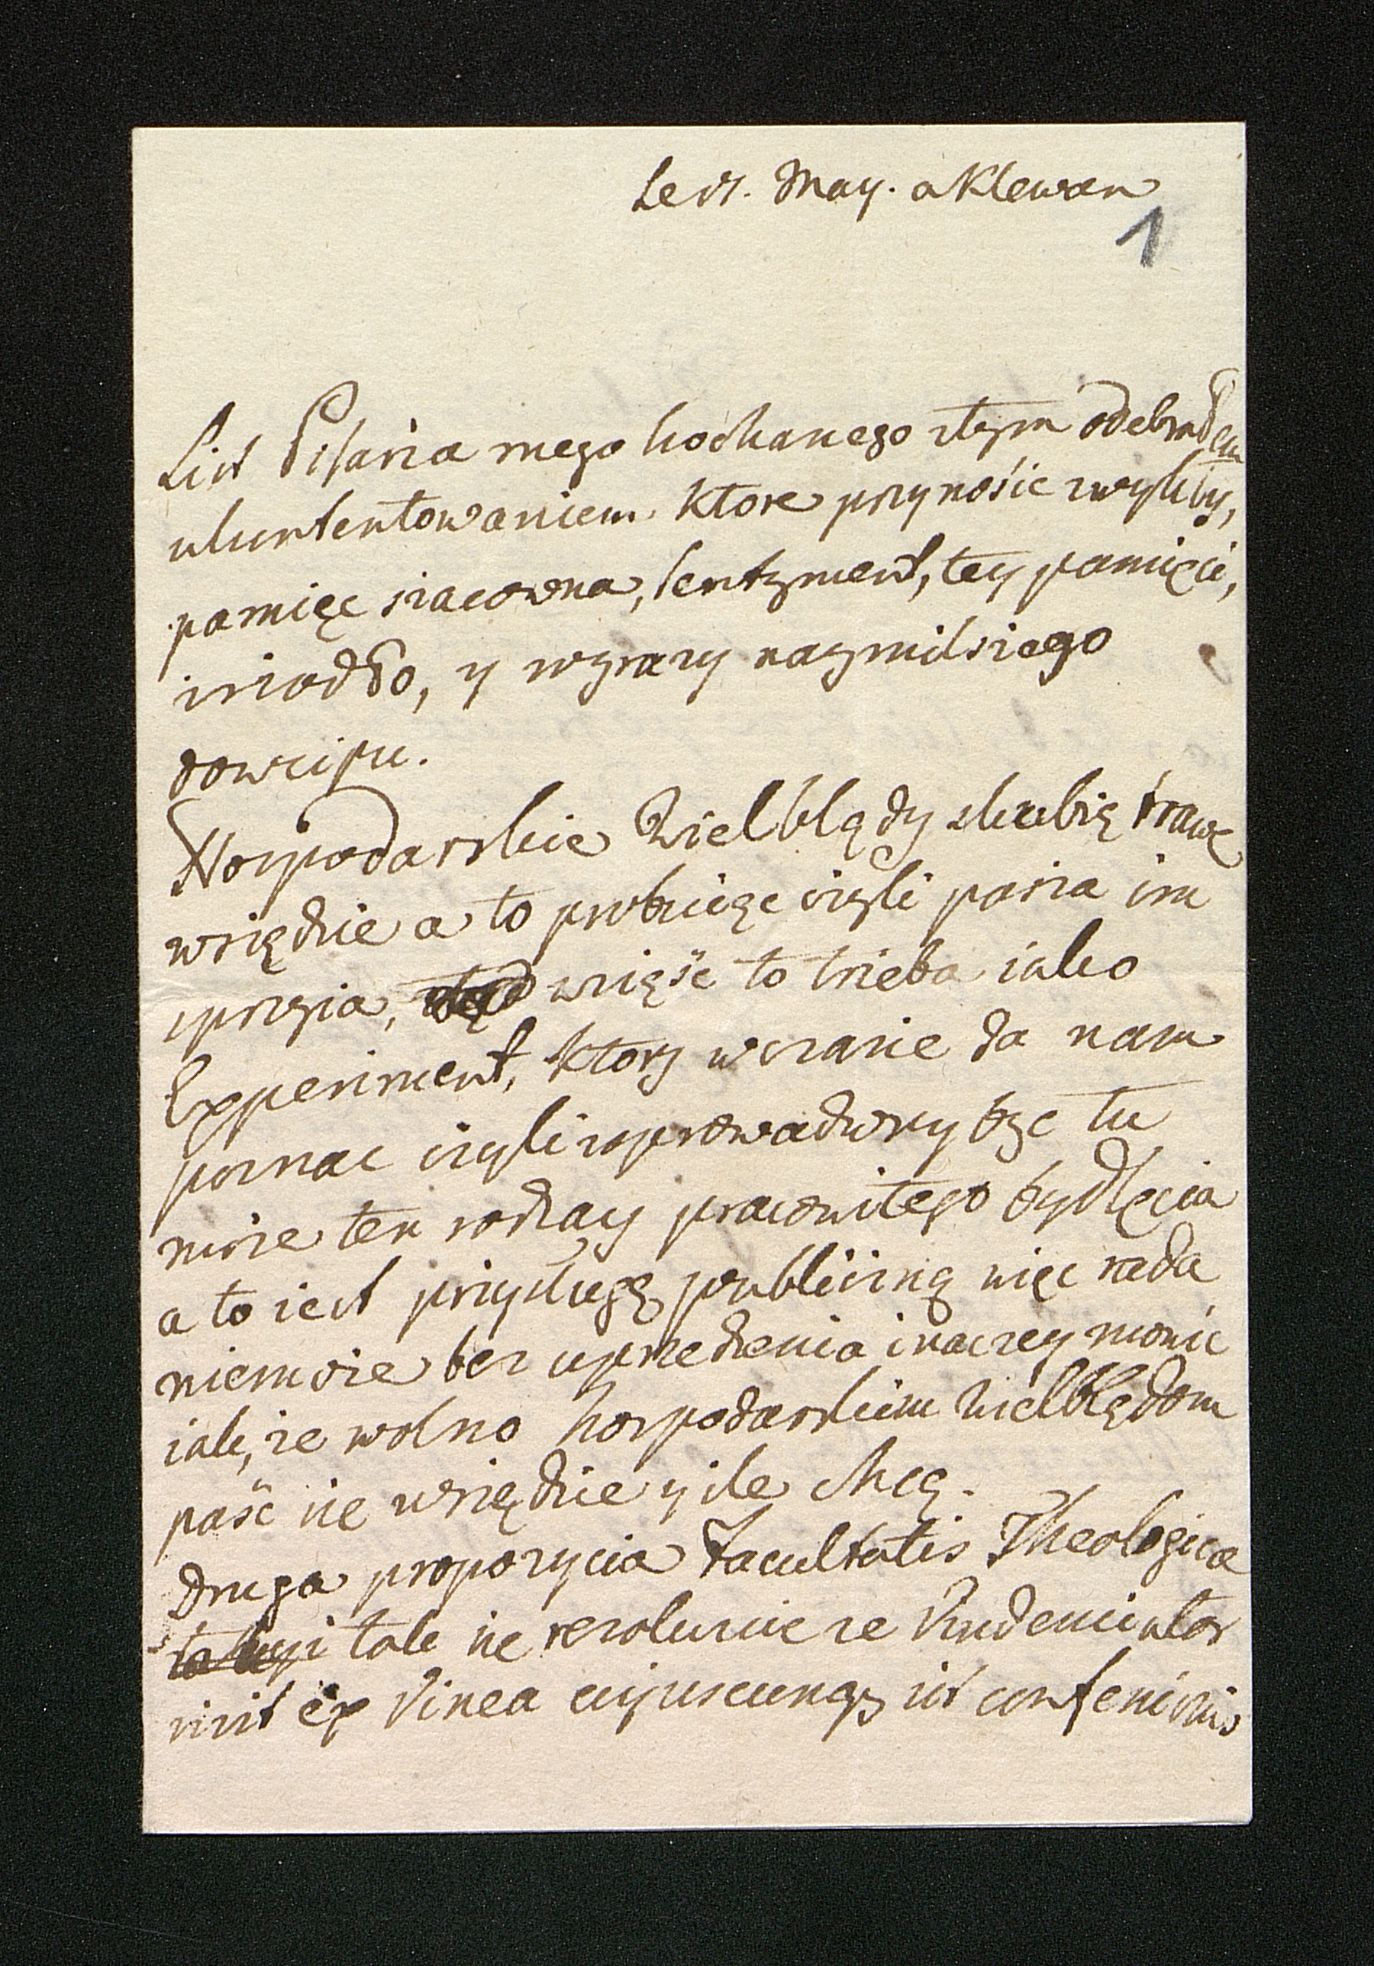 Le 31. May. a Klewan
1
List Pisarza mego kochanego z tym odebrałem
ukontentowaniem. ktore przynosic zwykły,
pamięc szacowna, sentyment, tey pamięci,
zrzodło, y wyrazy naymilszego
dowcipu.
Hospodarskie Wielblądy skubią trawę
wszędzie a to probuiąc iezli pasza im
sprzyia, wziąść to trzeba iako
Experiment, ktory w czasie da nam
poznac iezli zaprowadzony bydz tu
moze ten rodzay pracowitego bydlęcia
a to iest przysługą publiczną więc rada
niemoze bez uprzedzenia inaczey mowic
iak, ze wolno hospodarskim wielblędom
paść się wszędzie y ile chcą.
Druga propozycia Facultatis Theologicæ
tak się rezolwuie ze
ex Vinea cujuscunq3 sit confessionis